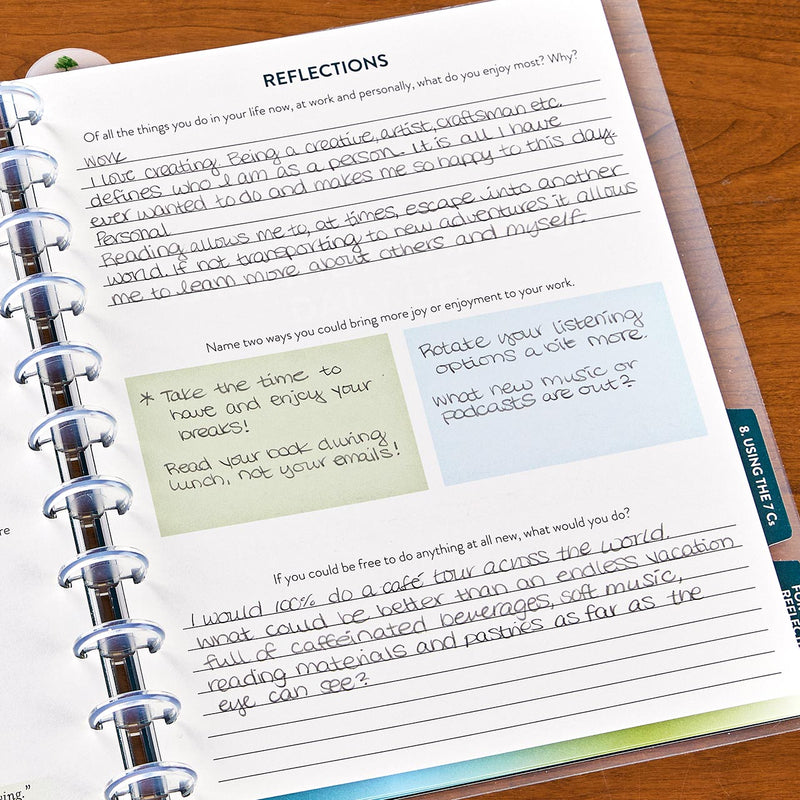 REFLECTIONS
Of all the things you do in your life now, at work and personally, what do you enjoy most? Why?
Work
I love creating. Being a creative, artist, craftsman etc.
defines who I am as a person. It is all I have
ever wanted to do and makes me so happy to this day.
Personal
Reading allows me to, at times, escape into another
world. If not transporting to new adventures it allows
me to learn more about others and myself.
Name two ways you could bring more joy or enjoyment to your work.
* Take the time to
have and enjoy your
breaks!
Read your book during
lunch, not your emails!
Rotate your listening
options a bit more.
What new music or
podcasts are out?
If you could be free to do anything at all new, what would you do?
I would 100% do a café tour across the world.
What could be better than an endless vacation
full of caffeinated beverages, soft music,
reading materials and pastries as far as the
eye can see?
8. USING THE 7 Cs